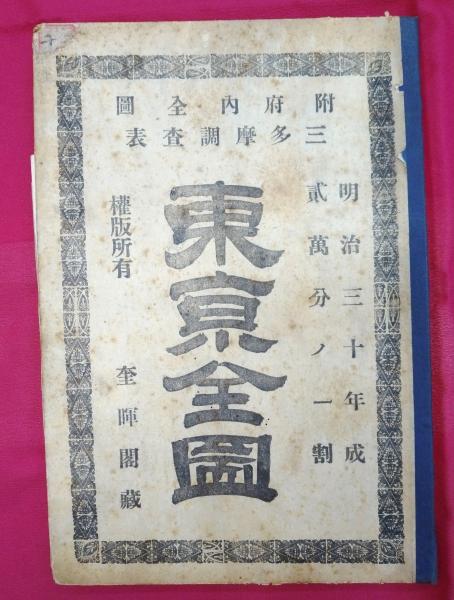 附府內全圖
三多摩調查表
明治三十年成
貳萬分ノ一割
東亰全圖
權版所有 奎暉閣藏